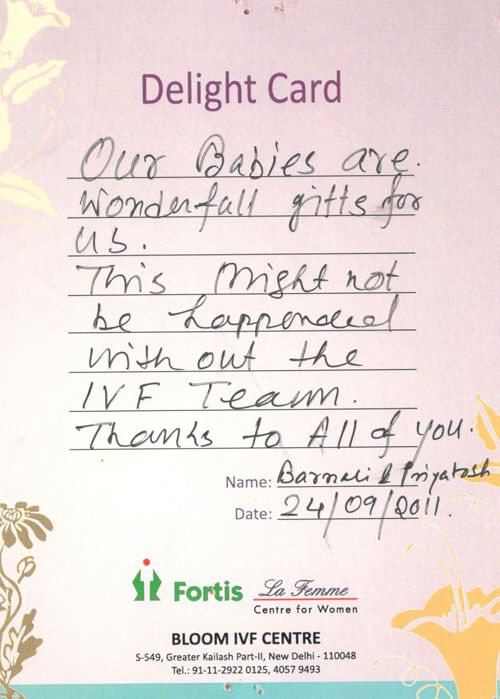 Delight Card
Our Babies are.
Wonderfull gifts for
us.
This Might not
be happended
with out the
IVF Team.
Thanks to All of you.
Name: Barnali & Priyatosh
Date: 24/09/2011.
Fortis La Femme
Centre for Women
BLOOM IVF CENTRE
S-549, Greater Kailash Part-II, New Delhi - 110048
Tel.: 91-11-2922 0125, 4057 9493